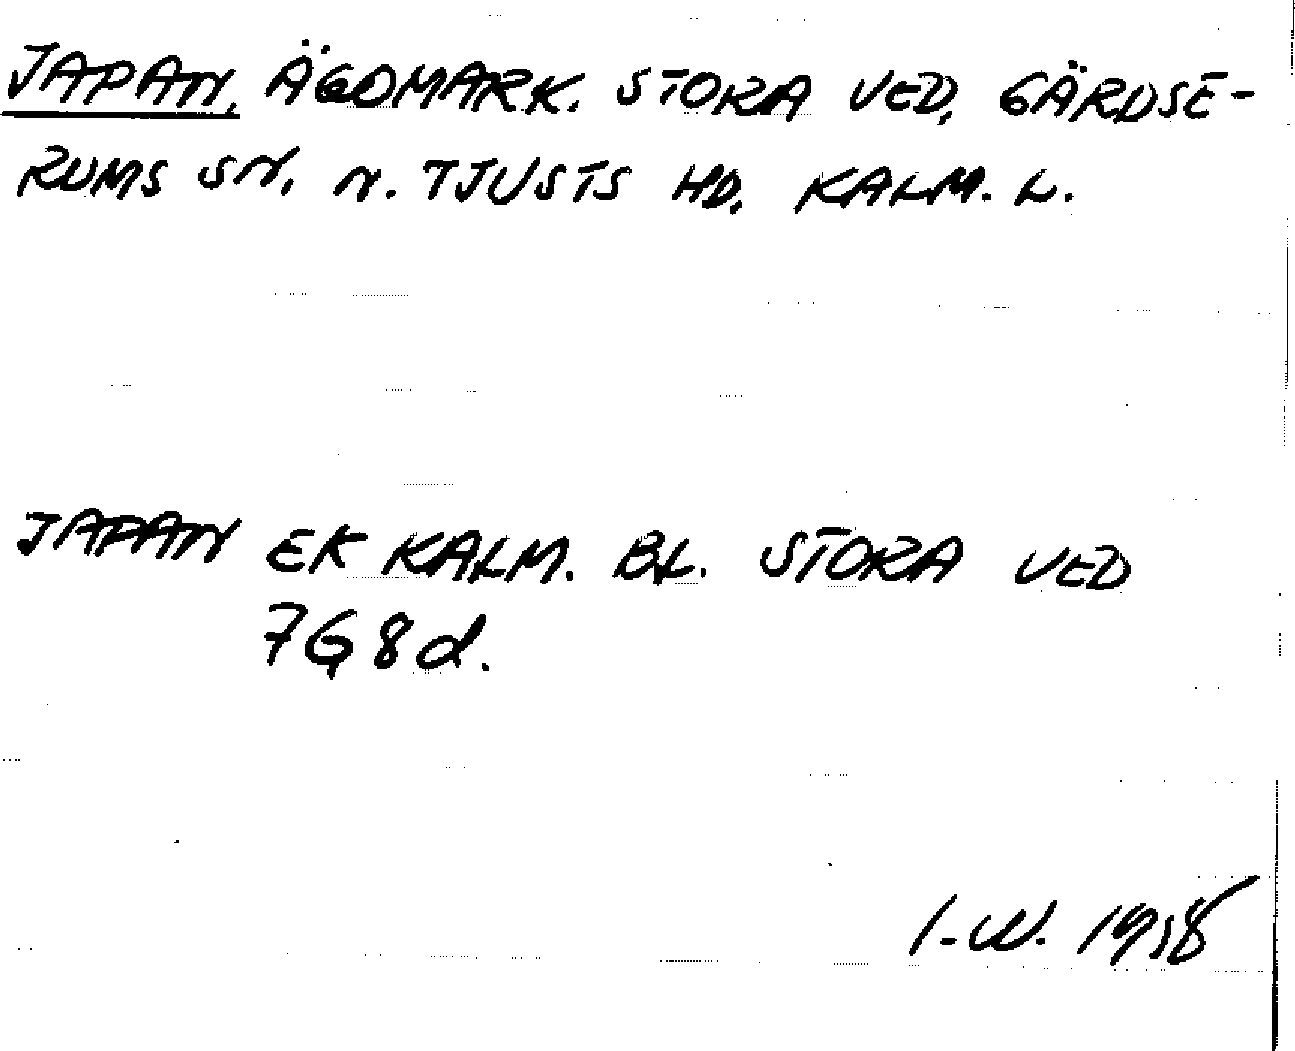 JAPAN, ÄGOMARK. STORA VED, GÄRDSE-
RUMS SN. N. TJUSTS HD. KALM. L.
JAPAN EK KALM. BL. STORA VED
7G8d.
I-W. 1958